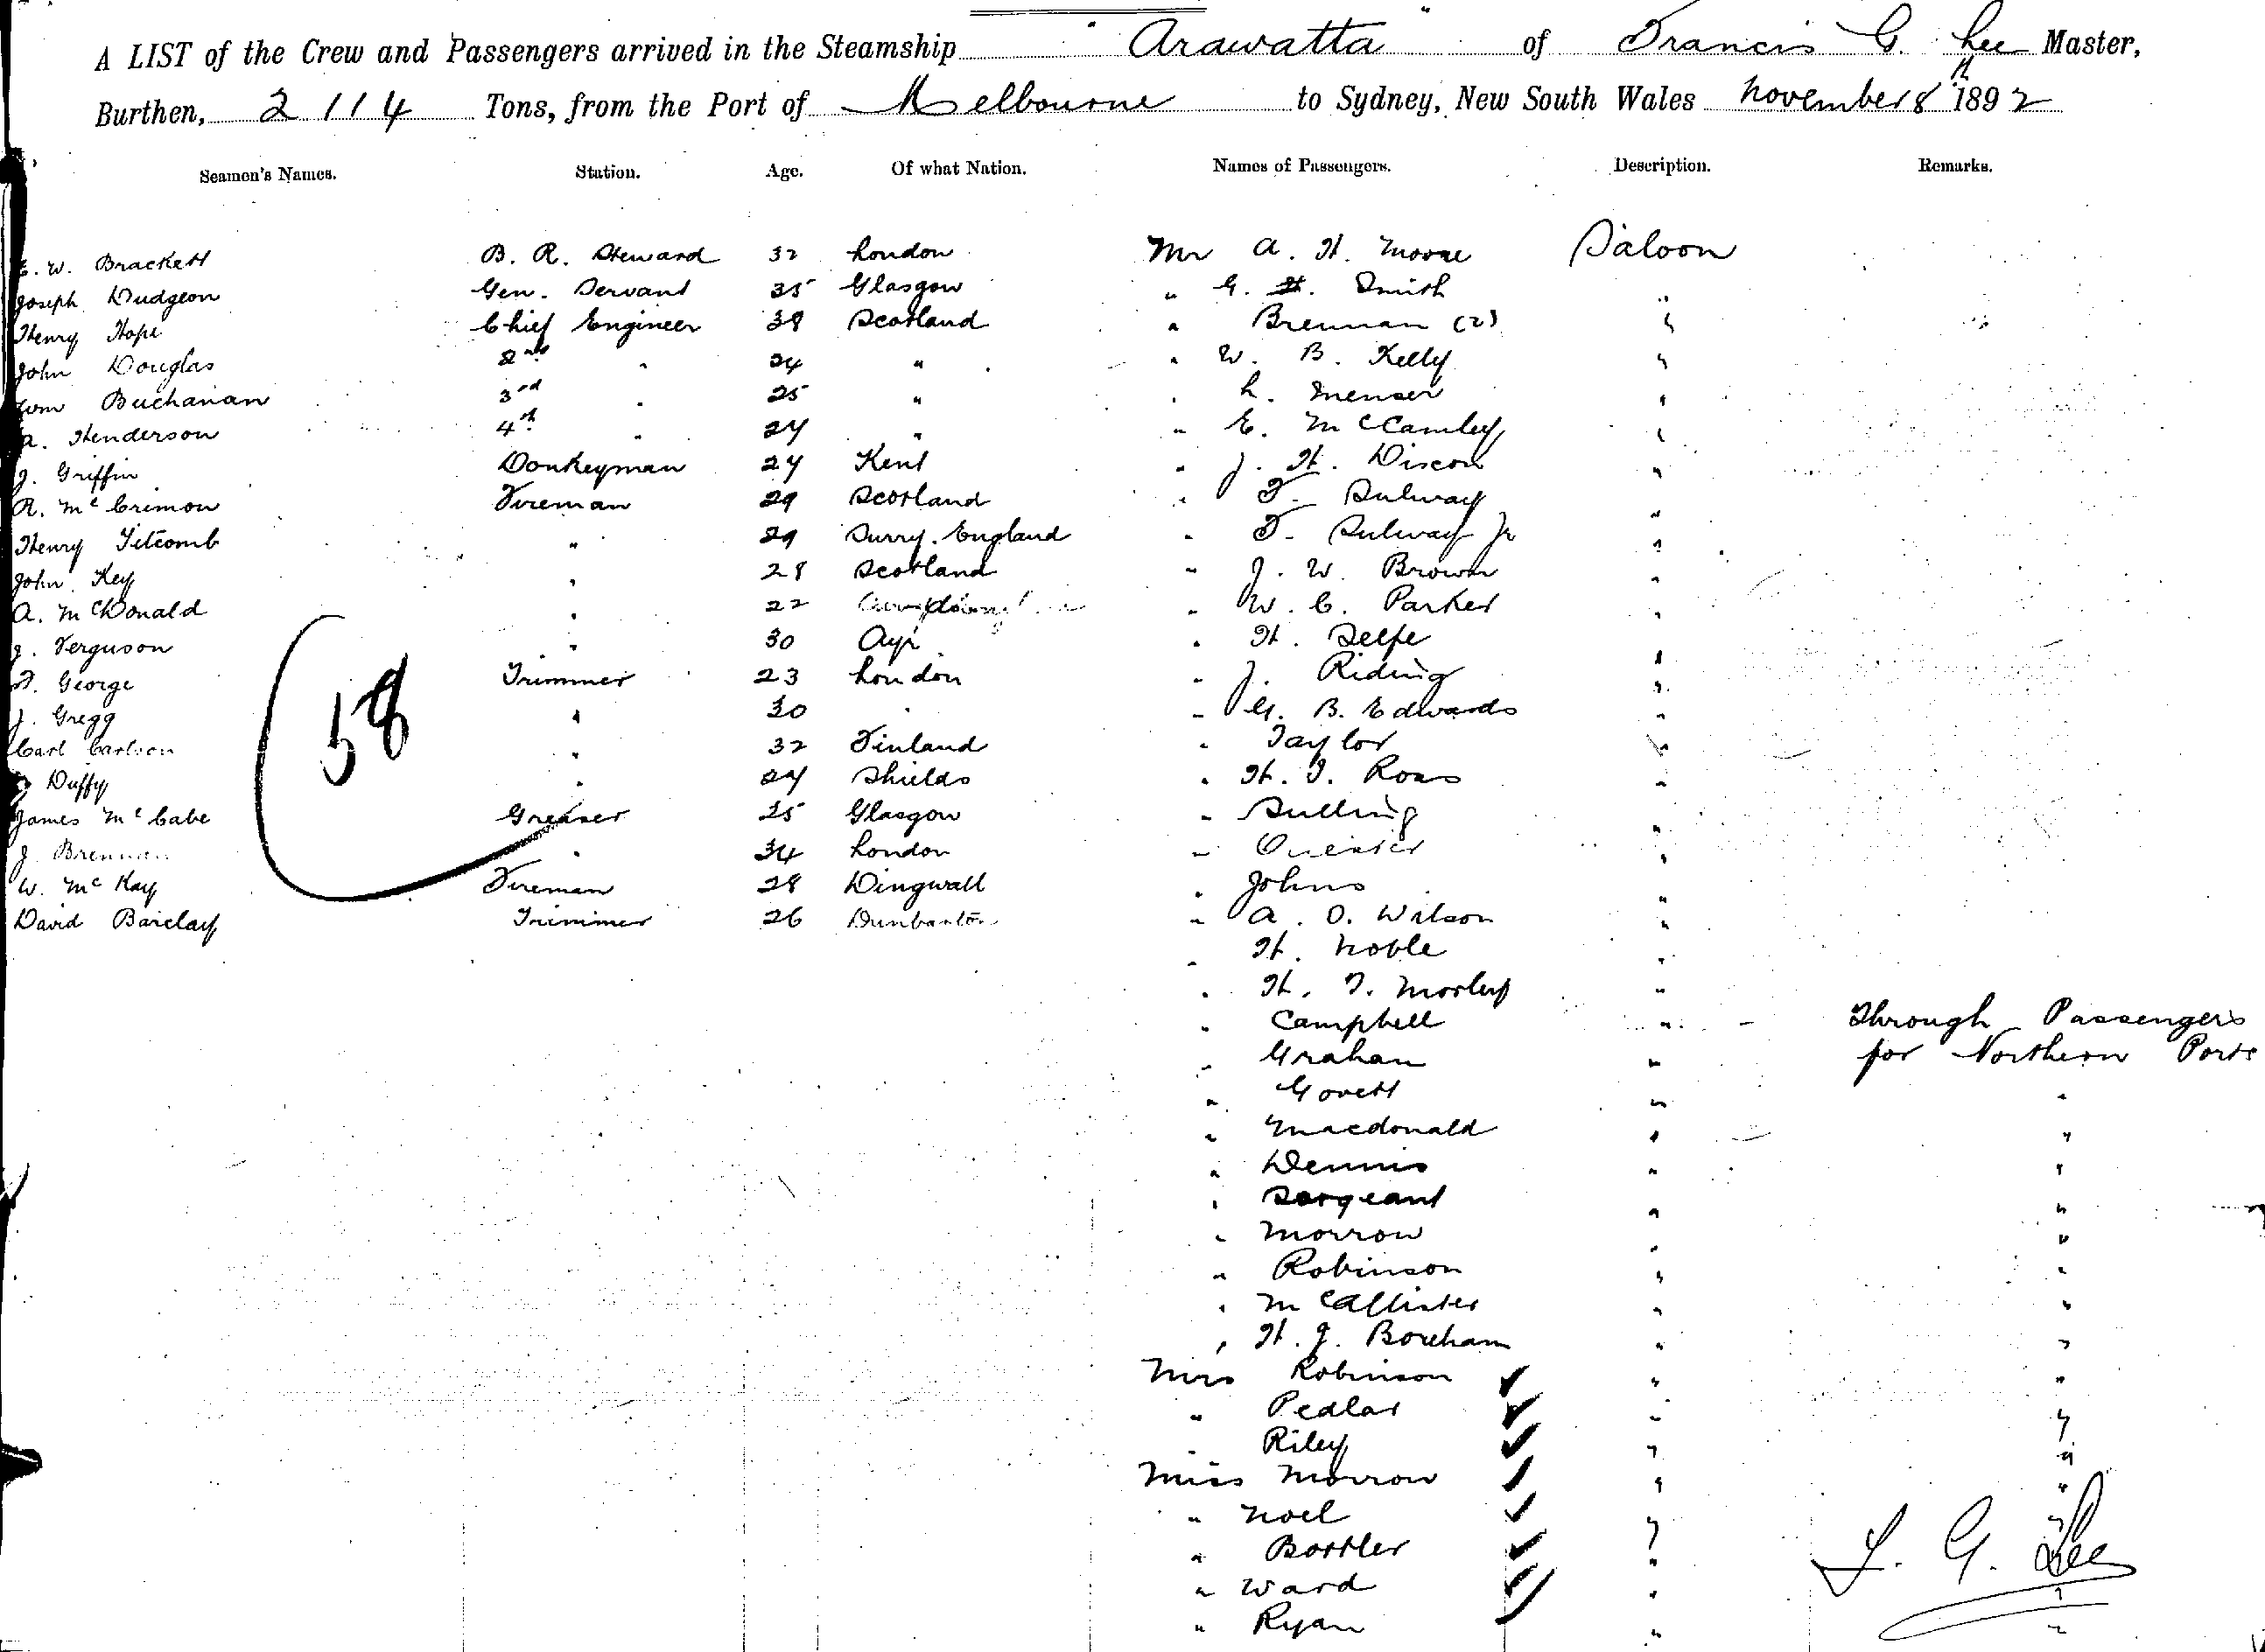 A LIST of the Crew and Passengers arrived in the Steamship "Arawatta" of Francis G. Lee Master,
Burthen, 2114 Tons, from the Port of Melbourne to Sydney, New South Wales November 8th 1892
Seamen's Names. Station. Age. Of what Nation. Names of Passengers. Description. Remarks.
W. Brackett B. R. Steward 32 London Mr A. H. Moore Saloon
Joseph Dudgeon Gen. Servant 35 Glasgow " G. H. Smith "
Henry Hope Chief Engineer 38 Scotland " Brennan (2) "
John Douglas 2nd " 24 " " W. B. Kelly "
Wm Buchanan 3rd " 25 " " L. Menser "
A. Henderson 4th " 24 " " E. McCamley "
J. Griffin Donkeyman 24 Kent " J. H. Discon "
R. McCrimon Fireman 29 Scotland " F. Sulway "
Henry Titcomb " 29 Surry. England " F. Sulway Jr "
John Key " 28 Scotland " J. W. Brown "
A. McDonald " 22 " W. C. Parker "
J. Ferguson " 30 Ayr " H. Selfe "
F. George Trimmer 23 London " J. Riding "
J. Gregg " 30 " " G. B. Edwards "
Carl Carlson " 32 Finland " Taylor "
Duffy " 24 Shields " H. J. Ross "
James McCabe Greaser 25 Glasgow " Sulling "
J. Brennan " 34 London " "
W. McKay Fireman 28 Dingwall " Johns "
David Barclay Trimmer 26 Dunbarton " A. O. Wilson "
58
" H. Noble "
" H. T. Morley "
" Campbell " Through Passengers
" Graham " for Northern Ports
" Govett " "
" Macdonald " "
" Dennis " "
" Sargeant " "
" Morrow " "
" Robinson " "
" McAllister " "
" H. J. Boreham " "
Mrs Robinson " "
" Pedlar " "
" Riley " "
Miss Morrow " "
" Noel " "
" Bottler "
F. G. Lee
" Ward " "
" Ryan " "